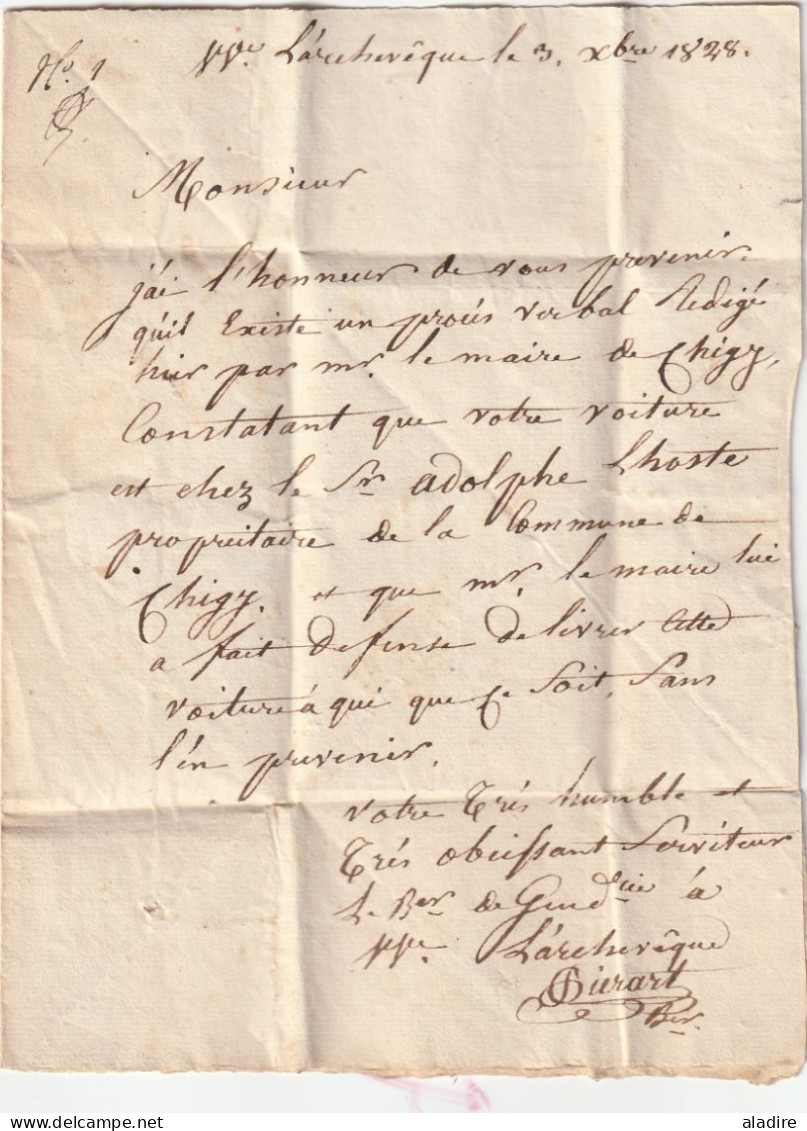 No. 1
VVe. L'archevêque le 3. xbre 1828.
Monsieur
j'ai l'honneur de vous prevenir
qu'il Existe un procés verbal Redigé
hier par mr. le maire de Chigy,
Constatant que votre voiture
est chez le Sr. adolphe Lhoste
propriétaire de la Commune de
Chigy. et que mr. le maire lui
a fait defense de livrer Cette
voiture á qui que Ce Soit, Sans
l'en prevenir.
votre trés humble et
trés obeissant Serviteur
Le Ber. de Gendrie à
VVe. L'archevêque
Gierart
Ber.
aladire